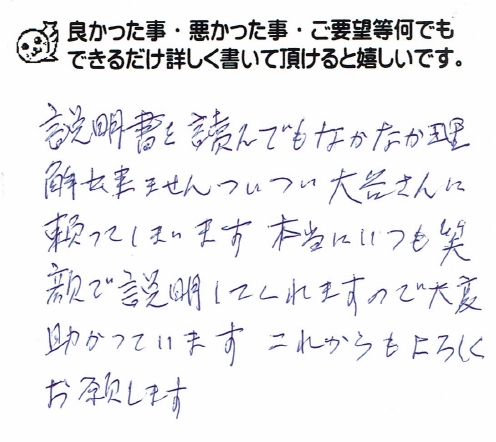 良かった事・悪かった事・ご要望等何でも
できるだけ詳しく書いて頂けると嬉しいです。
説明書を読んでもなかなか理
解出来ませんついつい大谷さんに
頼ってしまいます 本当にいつも笑
顔で説明してくれますので大変
助かっています これからもよろしく
お願します